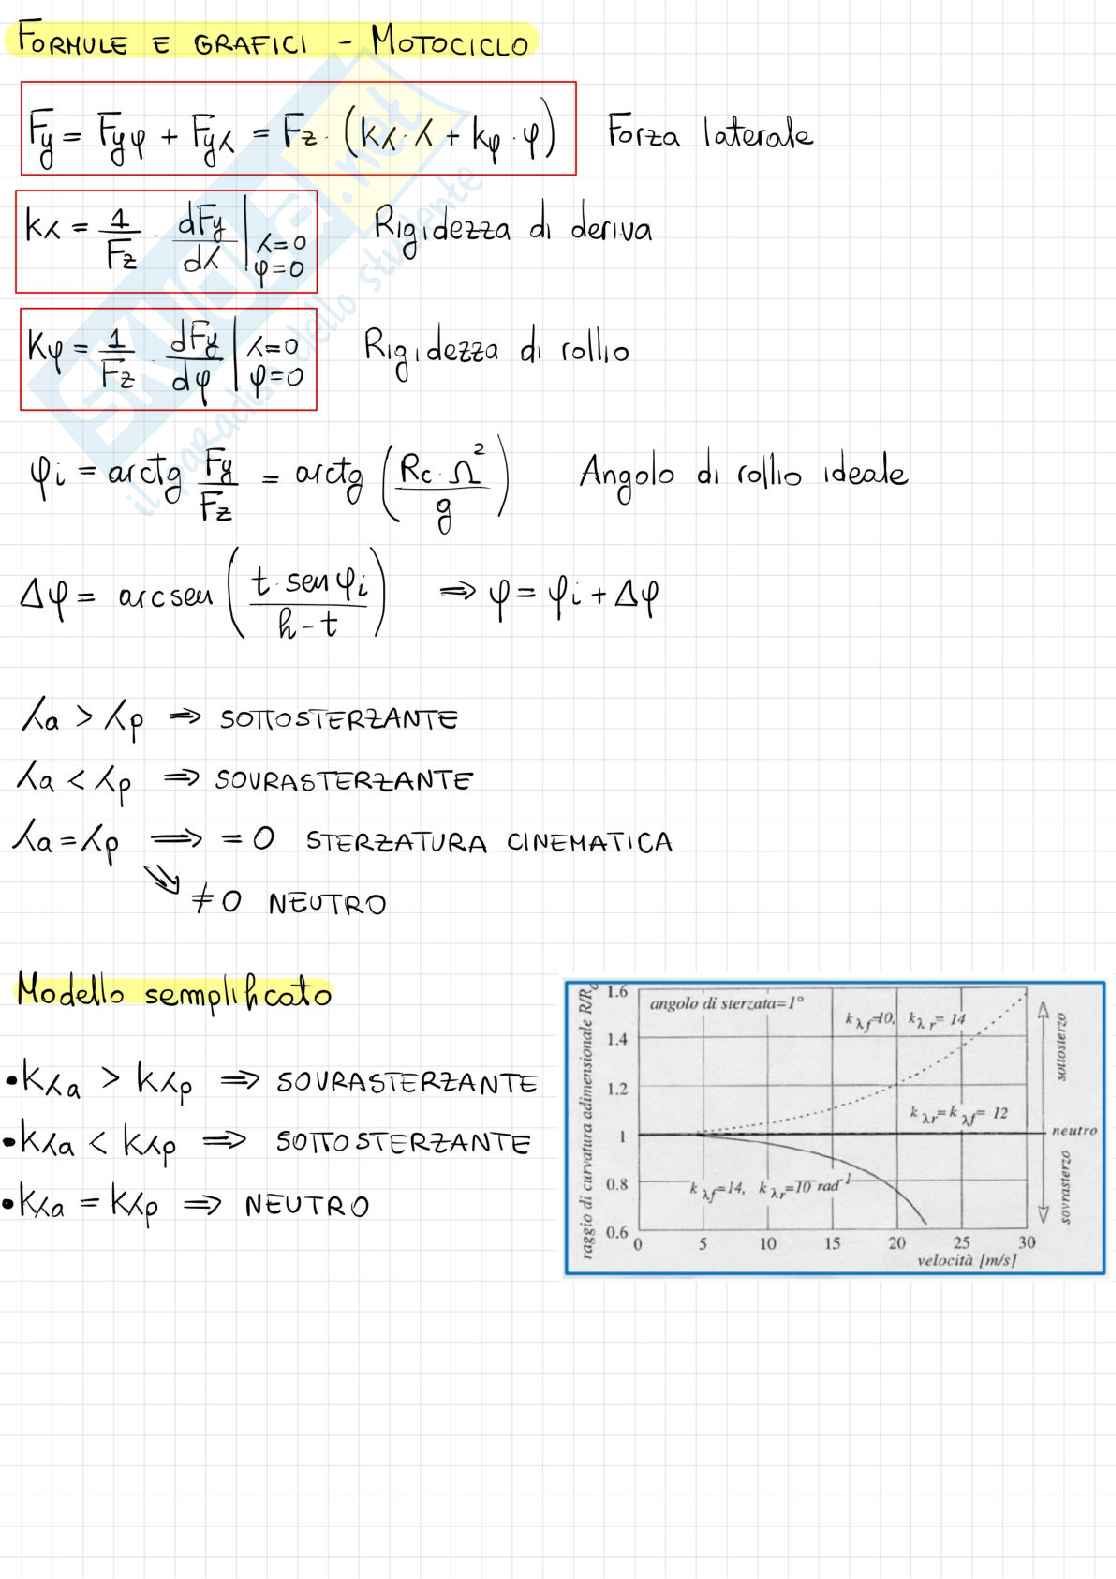 FORMULE E GRAFICI - MOTOCICLO
Fy = Fyφ + Fyλ = Fz · (kλ·λ + kφ·φ) Forza laterale
kλ = 1/Fz · dFy/dλ |λ=0 φ=0 Rigidezza di deriva
Kφ = 1/Fz · dFy/dφ |λ=0 φ=0 Rigidezza di rollio
φi = arctg Fy/Fz = arctg (Rc·Ω²/g) Angolo di rollio ideale
Δφ = arcsen (t·sen φi / h-t) ⇒ φ = φi + Δφ
λa > λp ⇒ SOTTOSTERZANTE
λa < λp ⇒ SOVRASTERZANTE
λa = λp ⇒ = 0 STERZATURA CINEMATICA
≠ 0 NEUTRO
Modello semplificato
•Kλa > kλp ⇒ SOVRASTERZANTE
•Kλa < kλp ⇒ SOTTOSTERZANTE
•Kλa = kλp ⇒ NEUTRO
raggio di curvatura adimensionale R/R
1.6
1.4
1.2
1
0.8
0.6
angolo di sterzata=1°
k λf=10, k λr= 14
k λr=k λf= 12
k λf=14, k λr=10 rad⁻¹
0 5 10 15 20 25 30
velocità [m/s]
sottosterzo
neutro
sovrasterzo
SKUOLA.net
il paradiso dello studente